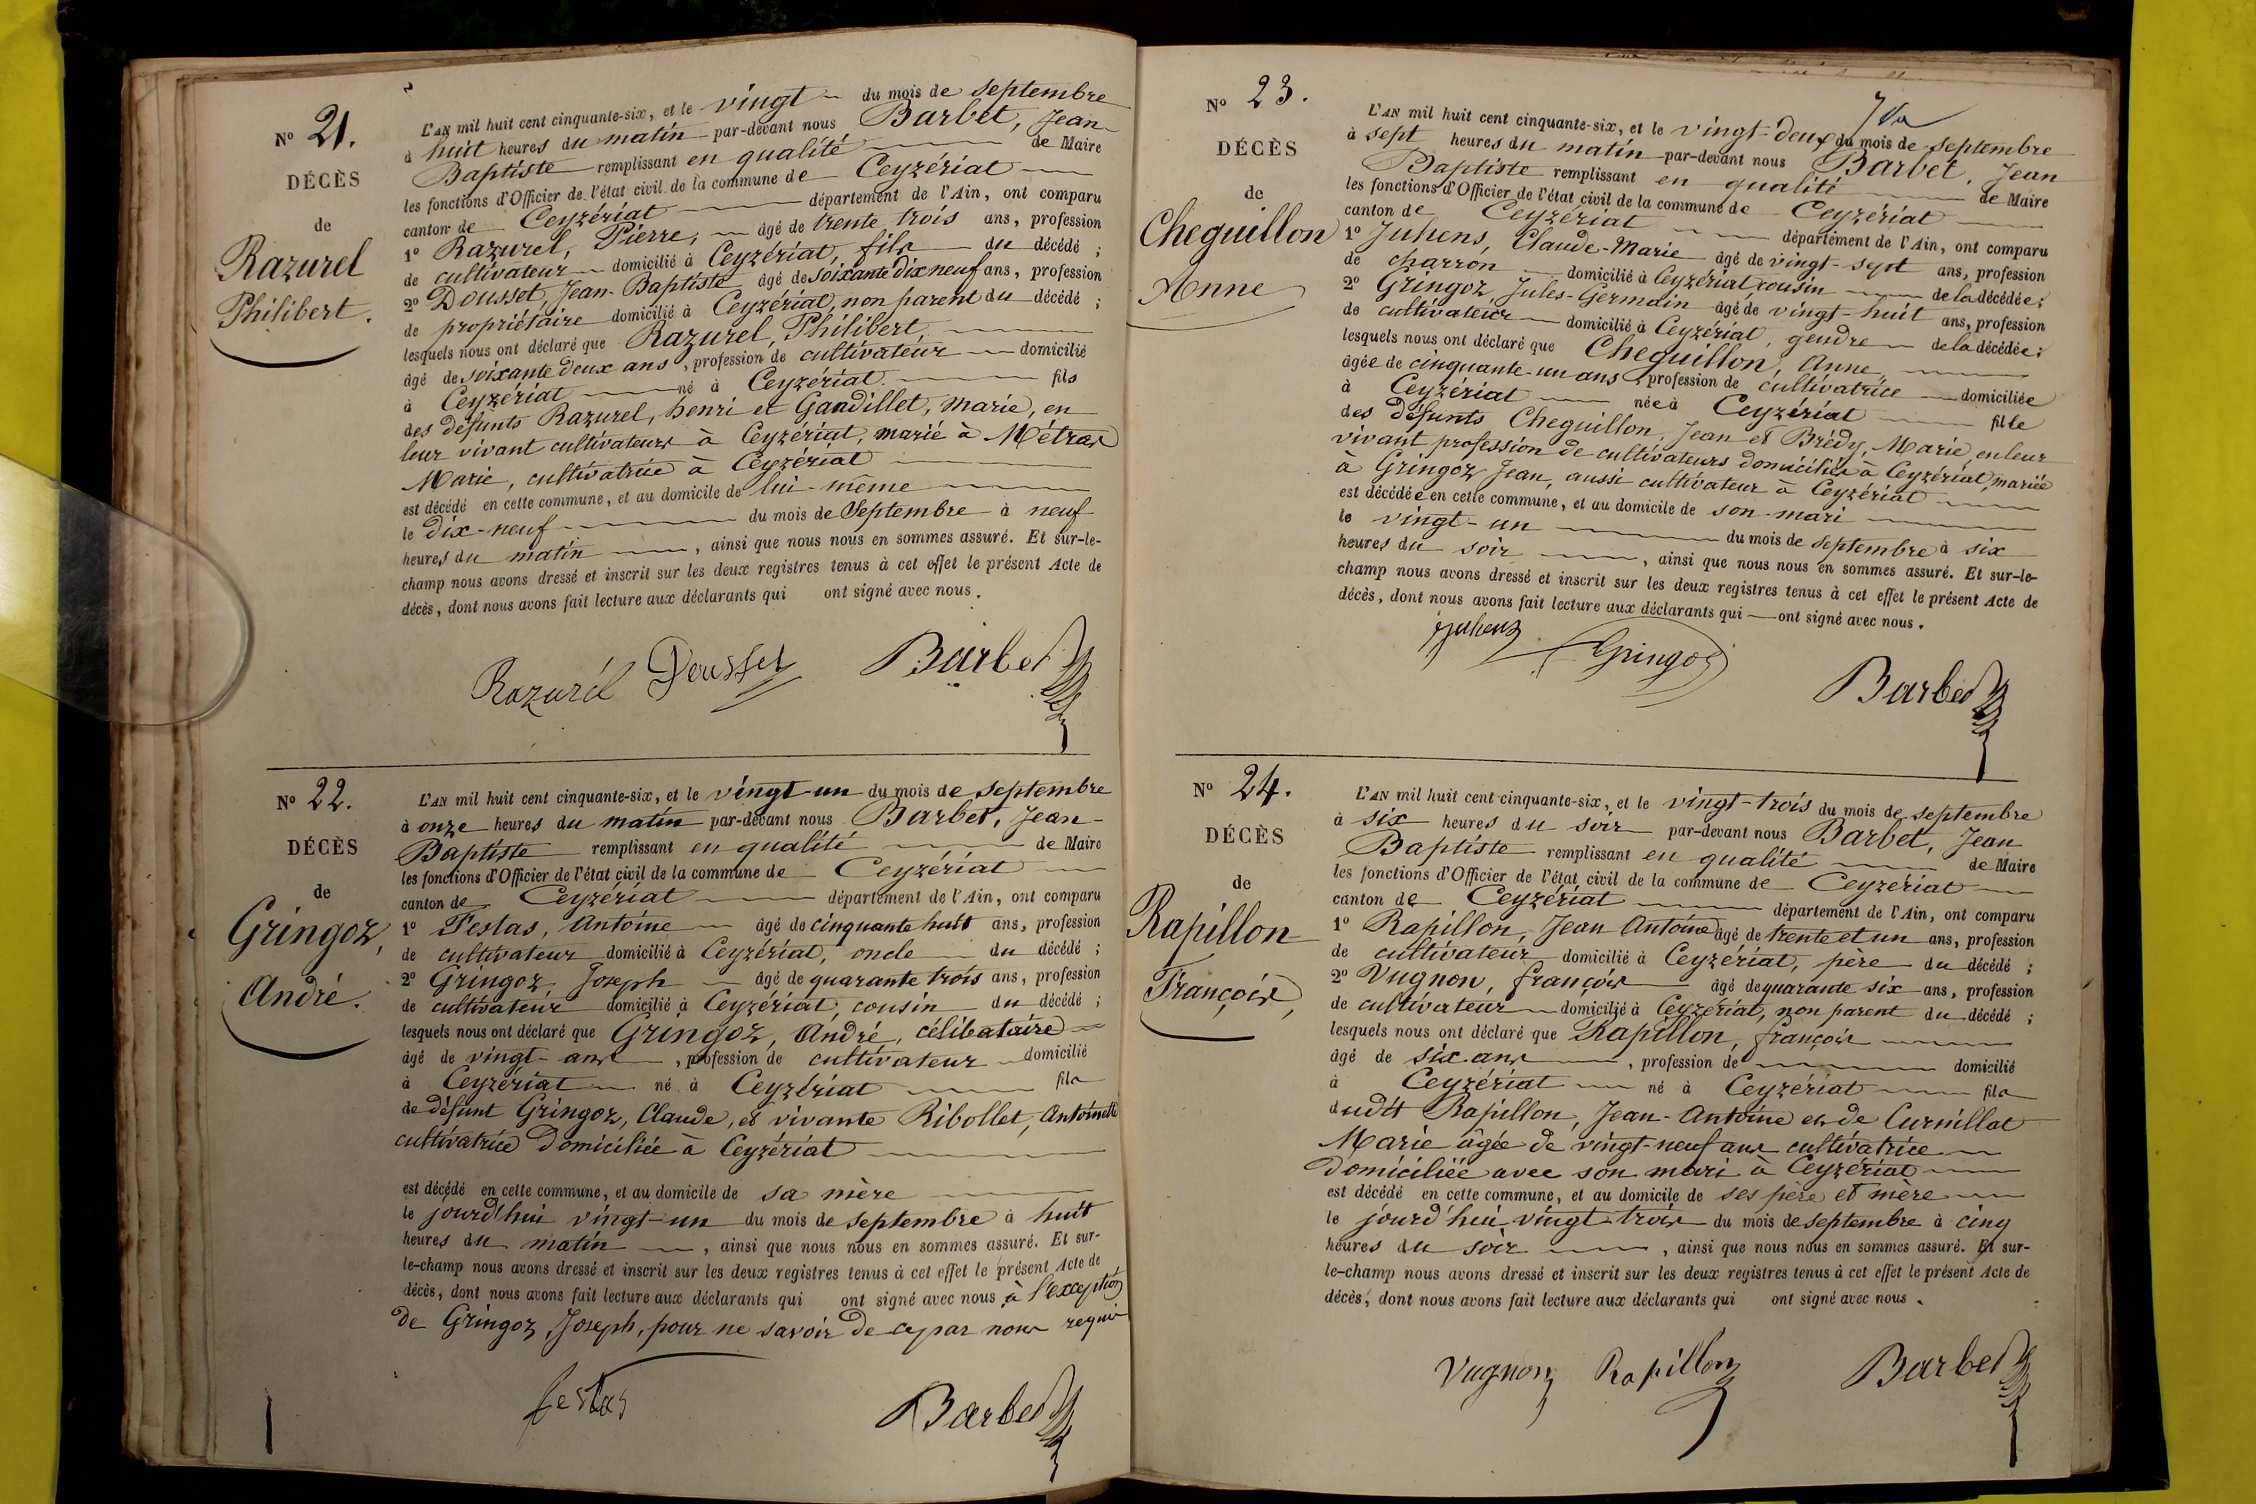 N° 21.
DÉCÈS
de
Razurel
Philibert.
L'AN mil huit cent cinquante-six, et le vingt du mois de Septembre
à huit heures du matin par-devant nous Barbet, Jean
Baptiste remplissant en qualité de Maire
les fonctions d'Officier de l'état civil de la commune de Ceyzériat
canton de Ceyzériat département de l'Ain, ont comparu
1° Razurel, Pierre, âgé de trente trois ans, profession
de cultivateur domicilié à Ceyzériat, fils du décédé ;
2° Dousset, Jean-Baptiste âgé de soixante dix neuf ans, profession
de propriétaire domicilié à Ceyzériat, non parent du décédé ;
lesquels nous ont déclaré que Razurel, Philibert
âgé de soixante deux ans, profession de cultivateur domicilié
à Ceyzériat né à Ceyzériat fils
des défunts Razurel, henri et Gandillet, marie, en
leur vivant cultivateurs à Ceyzériat, marié à Métras
Marie, cultivatrice à Ceyzériat
est décédé en cette commune, et au domicile de lui-meme
le dix-neuf du mois de Septembre à neuf
heures du matin, ainsi que nous nous en sommes assuré. Et sur-le-
champ nous avons dressé et inscrit sur les deux registres tenus à cet effet le présent Acte de
décès, dont nous avons fait lecture aux déclarants qui ont signé avec nous.
Razurel Dousset Barbet
N° 22.
DÉCÈS
de
Gringoz,
André.
L'AN mil huit cent cinquante-six, et le vingt-un du mois de Septembre
à onze heures du matin par-devant nous Barbet, Jean-
Baptiste remplissant en qualité de Maire
les fonctions d'Officier de l'état civil de la commune de Ceyzériat
canton de Ceyzériat département de l'Ain, ont comparu
1° Festas, Antoine âgé de cinquante huit ans, profession
de cultivateur domicilié à Ceyzériat, oncle du décédé ;
2° Gringoz, Joseph âgé de quarante trois ans, profession
de cultivateur domicilié à Ceyzériat, cousin du décédé ;
lesquels nous ont déclaré que Gringoz, André, célibataire
âgé de vingt-ans, profession de cultivateur domicilié
à Ceyzériat né à Ceyzériat fils
de défunt Gringoz, Claude, et vivante Ribollet, Antoinette
cultivatrice domiciliée à Ceyzériat
est décédé en cette commune, et au domicile de sa mère
le jourd'hui vingt-un du mois de septembre à huit
heures du matin, ainsi que nous nous en sommes assuré. Et sur-
le-champ nous avons dressé et inscrit sur les deux registres tenus à cet effet le présent Acte de
décès, dont nous avons fait lecture aux déclarants qui ont signé avec nous à l'exception
de Gringoz, Joseph, pour ne savoir de ce par nous requis
festas Barbet
N° 23.
DÉCÈS
de
Cheguillon
Anne
L'AN mil huit cent cinquante-six, et le vingt-deux du mois de septembre
à sept heures du matin par-devant nous Barbet, Jean
Baptiste remplissant en qualité de Maire
les fonctions d'Officier de l'état civil de la commune de Ceyzériat
canton de Ceyzériat département de l'Ain, ont comparu
1° Juhens, Claude-Marie âgé de vingt-sept ans, profession
de charron domicilié à Ceyzériat, cousin de la décédée ;
2° Gringoz, Jules-Germain âgé de vingt-huit ans, profession
de cultivateur domicilié à Ceyzériat, gendre de la décédée ;
lesquels nous ont déclaré que Cheguillon, Anne,
âgée de cinquante-un ans, profession de cultivatrice domiciliée
à Ceyzériat née à Ceyzériat fille
des défunts Cheguillon, Jean et Brédy, Marie, en leur
vivant profession de cultivateurs domiciliés à Ceyzériat, mariée
à Gringoz Jean, aussi cultivateur à Ceyzériat
est décédée en cette commune, et au domicile de son mari
le vingt-un du mois de septembre à six
heures du soir, ainsi que nous nous en sommes assuré. Et sur-le-
champ nous avons dressé et inscrit sur les deux registres tenus à cet effet le présent Acte de
décès, dont nous avons fait lecture aux déclarants qui ont signé avec nous.
Juhens Gringoz
Barbet
N° 24.
DÉCÈS
de
Rapillon
François,
L'AN mil huit cent cinquante-six, et le vingt-trois du mois de septembre
à six heures du soir par-devant nous Barbet, Jean
Baptiste remplissant en qualité de Maire
les fonctions d'Officier de l'état civil de la commune de Ceyzériat
canton de Ceyzériat département de l'Ain, ont comparu
1° Rapillon, Jean Antoine âgé de trente et un ans, profession
de cultivateur domicilié à Ceyzériat, père du décédé ;
2° Vugnon, françois âgé de quarante six ans, profession
de cultivateur domicilié à Ceyzériat, non parent du décédé ;
lesquels nous ont déclaré que Rapillon, françois
âgé de six ans, profession de domicilié
à Ceyzériat né à Ceyzériat fils
dudit Rapillon, Jean-Antoine et de Curnillat
Marie âgée de vingt-neuf ans cultivatrice
domiciliée avec son mari à Ceyzériat
est décédé en cette commune, et au domicile de ses père et mère
le jourd'hui vingt trois du mois de septembre à cinq
heures du soir, ainsi que nous nous en sommes assuré. Et sur-
le-champ nous avons dressé et inscrit sur les deux registres tenus à cet effet le présent Acte de
décès, dont nous avons fait lecture aux déclarants qui ont signé avec nous.
Vugnon Rapillon Barbet